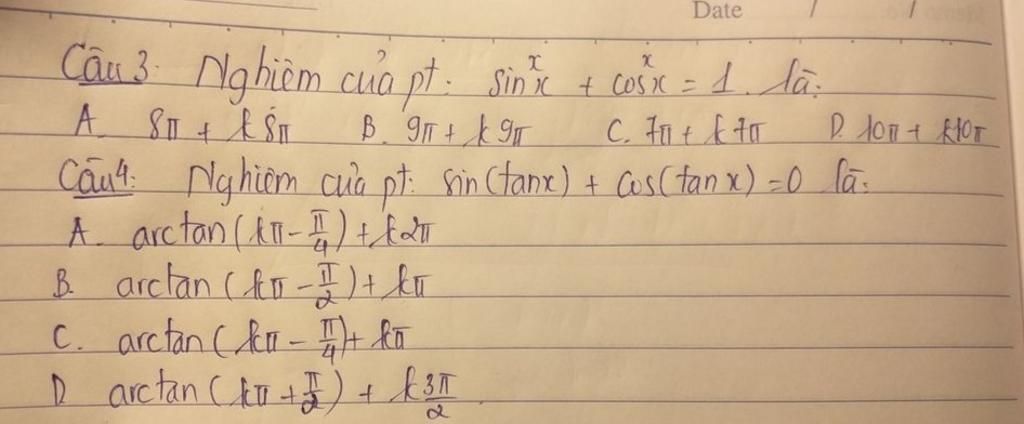 Date / /
Câu 3: Nghiệm của pt: sin^x x + cos^x x = 1. là:
A. 8π + k8π B. 9π + k9π C. 7π + k7π D. 10π + k10π
Câu 4: Nghiệm của pt: sin(tanx) + cos(tanx) = 0 là:
A. arctan(kπ - π/4) + k2π
B. arctan(kπ - π/2) + kπ
C. arctan(kπ - π/4) + kπ
D arctan(kπ + π/2) + k3π/2